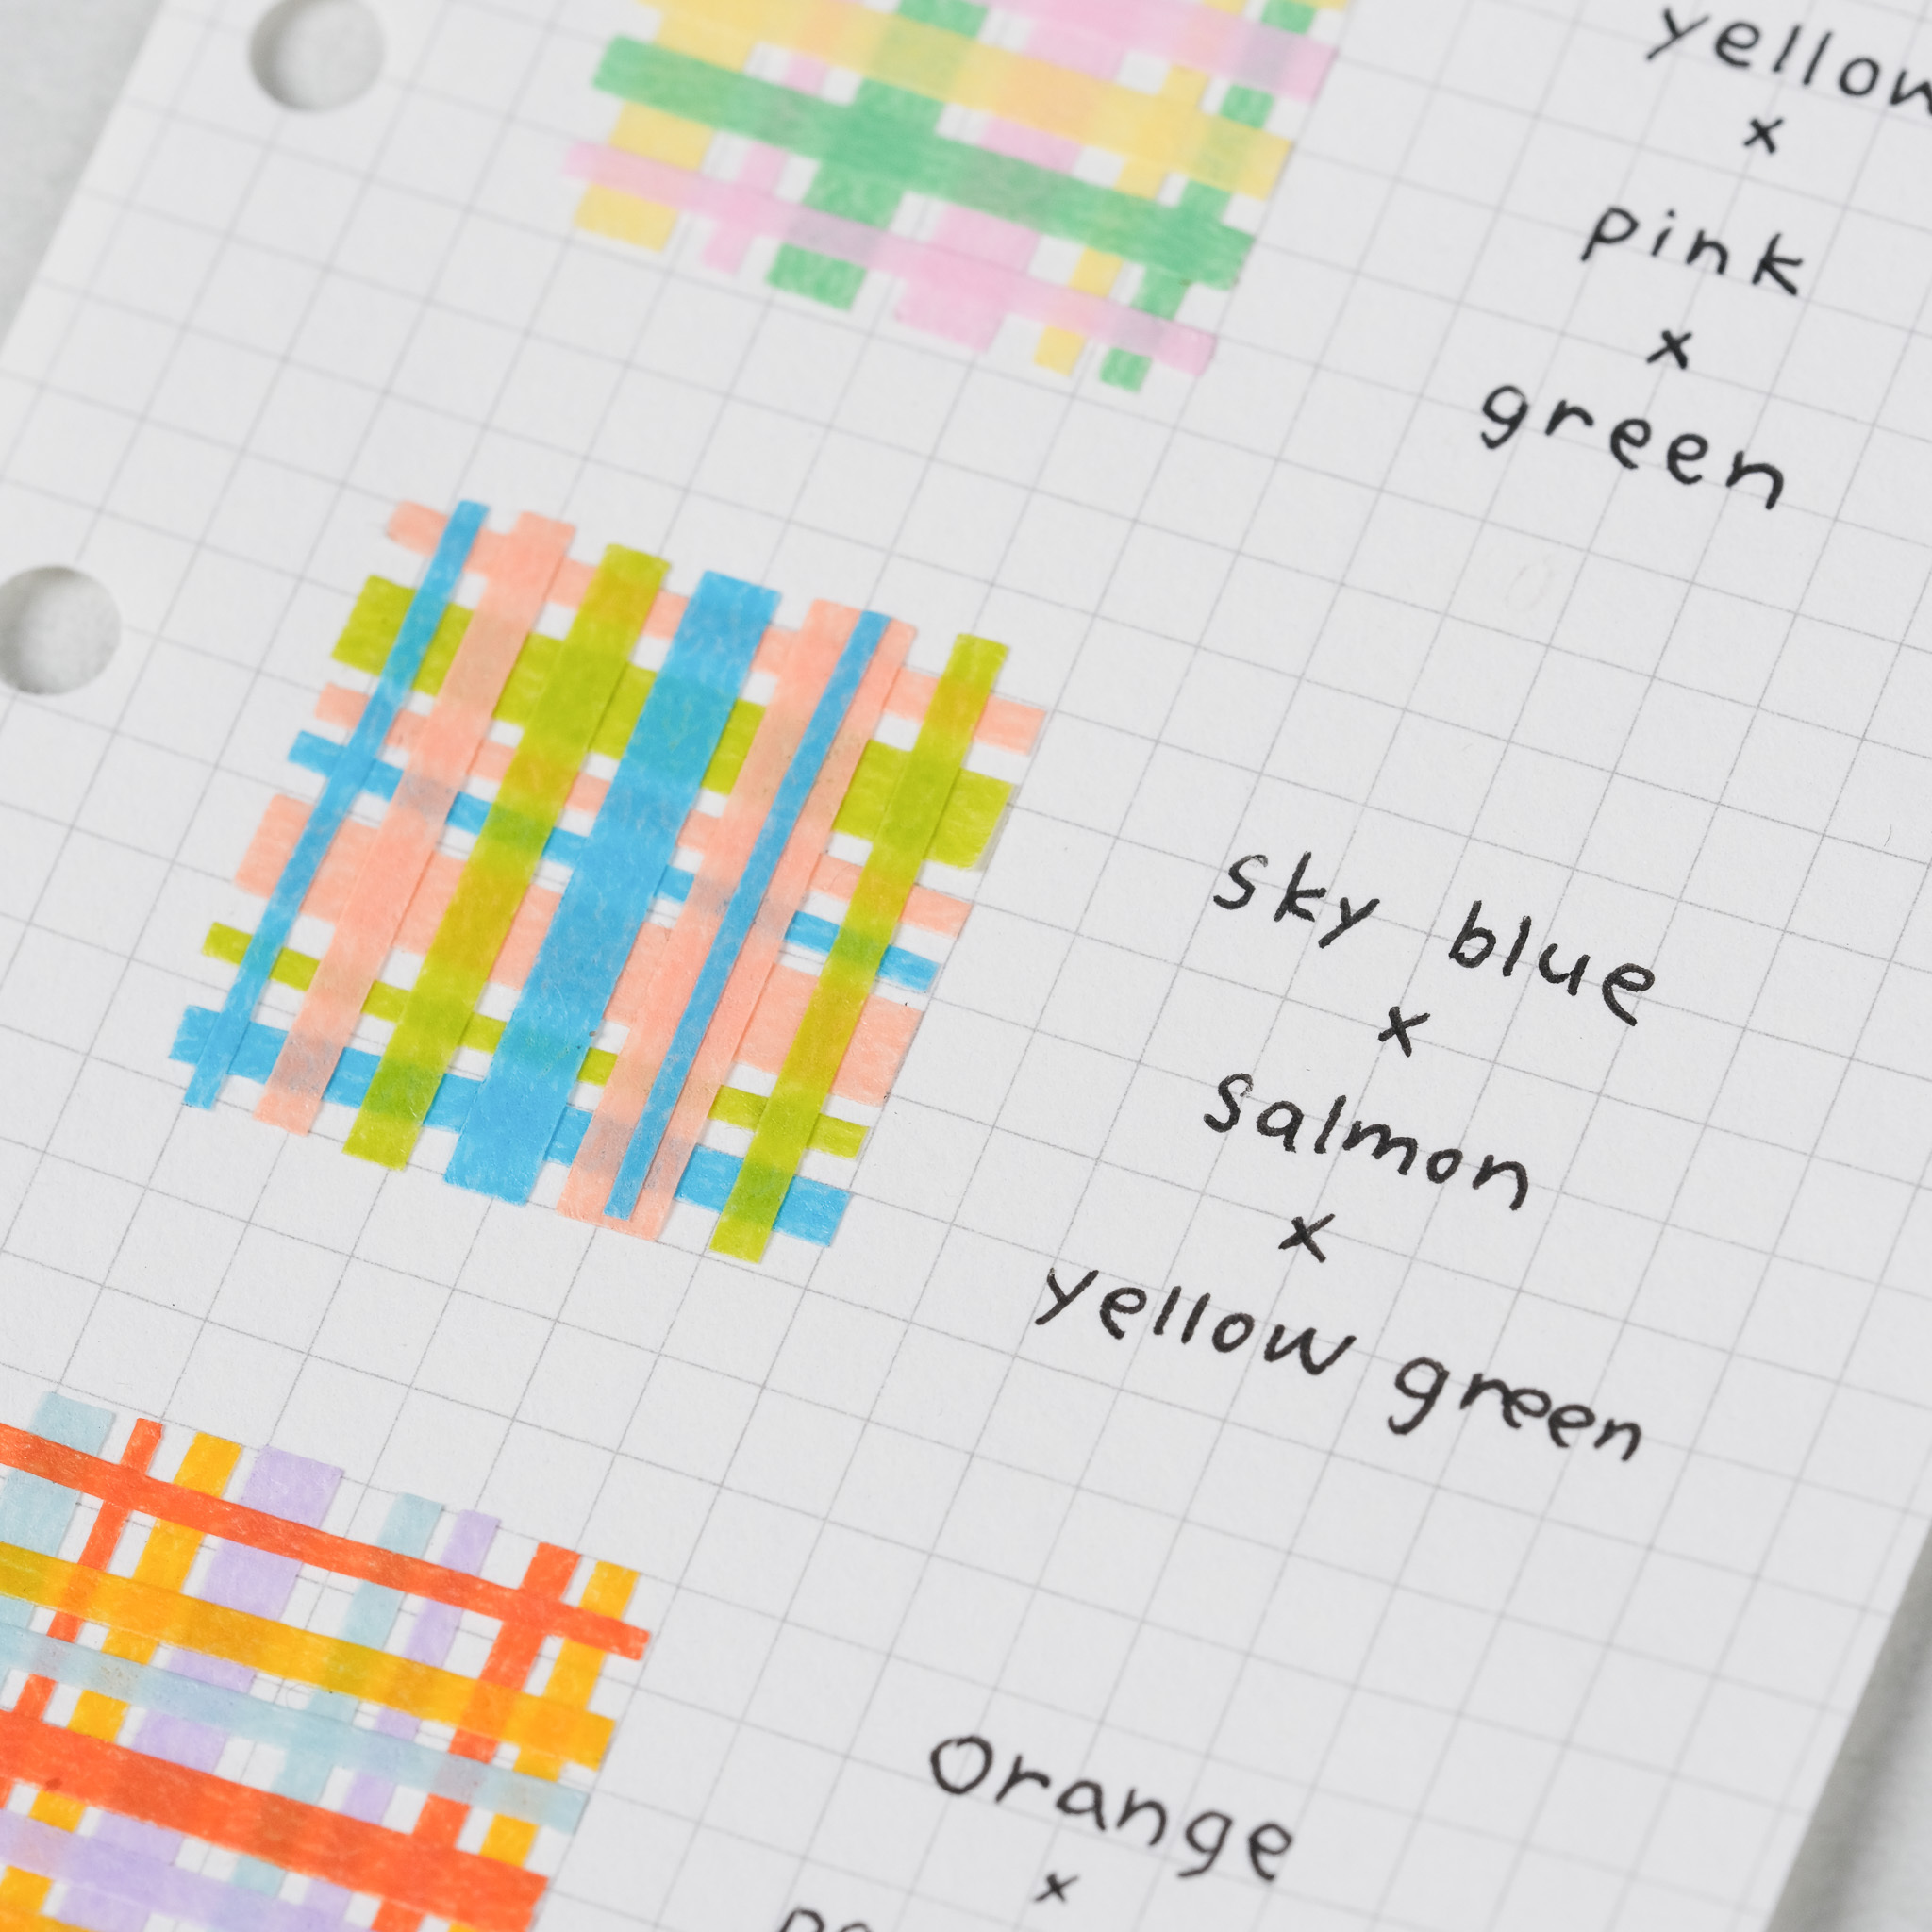 yellow
x
pink
x
green
sky blue
x
salmon
x
yellow green
Orange
x